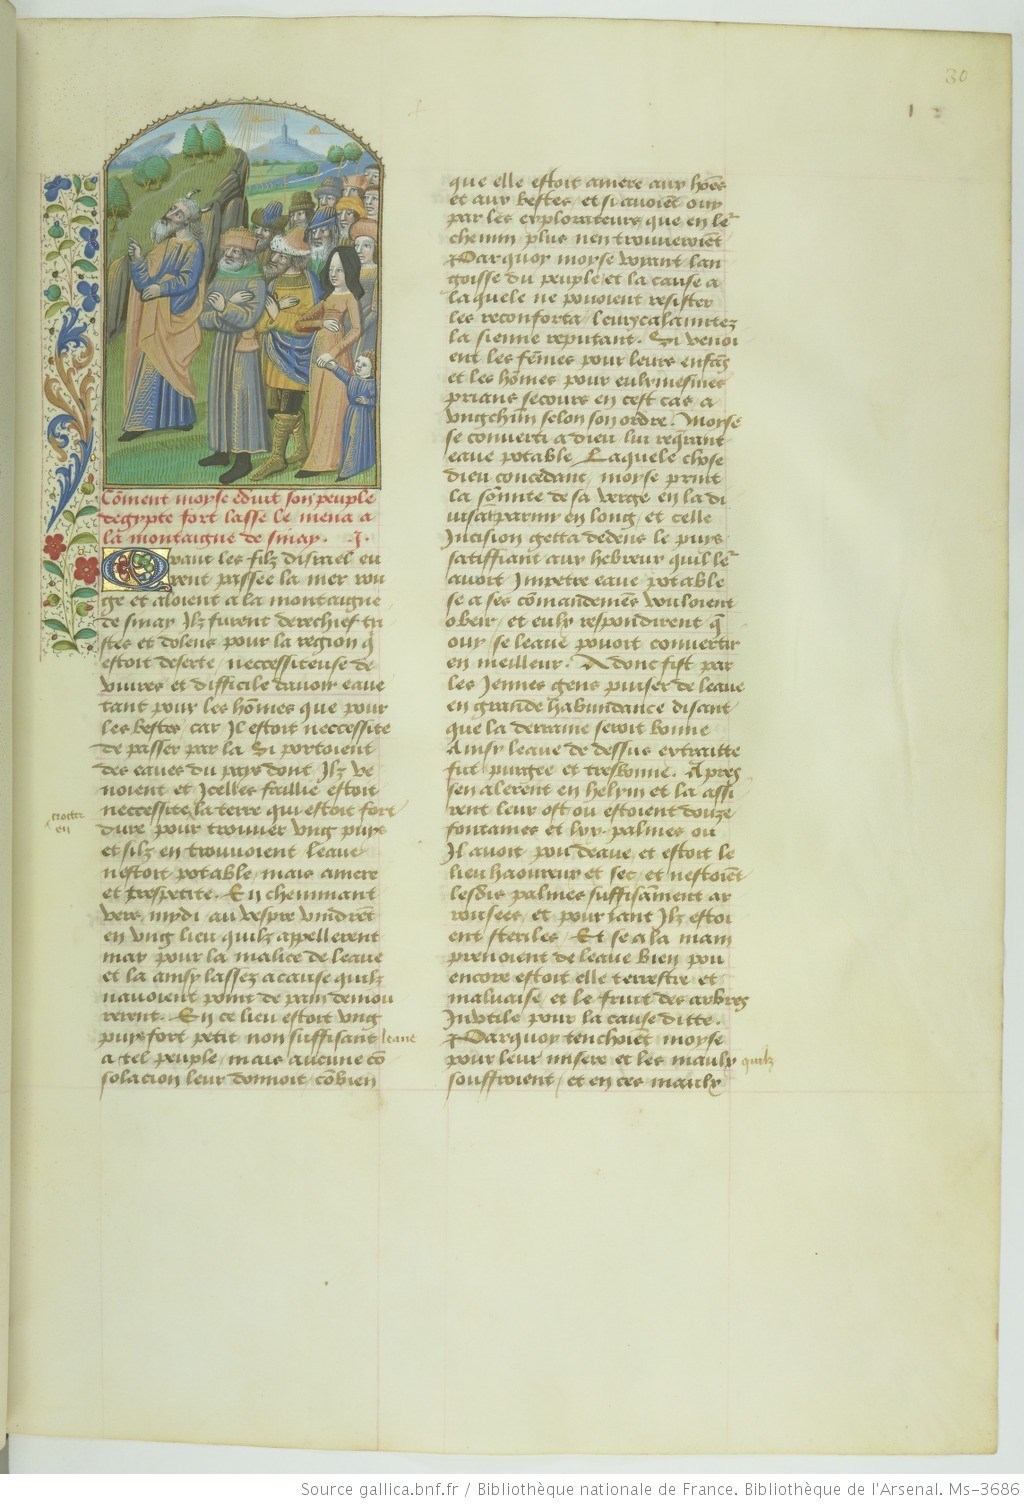 30
1
Co᷇ment moyse eduit son peuple
degypte fort lasse le mena a
la montaigne de sinay . I .
Quant les filz disrael eu
rent passee la mer rou
ge et aloient a la montaigne
de sinay Ilz furent derechief tri
stes et dolens pour la region q̄
estoit deserte / neccessiteuse de
viures et difficile dauoir eaue
tant pour les hōmes que pour
les bestes car Il estoit neccessite
de passer par la Si portoient
des eaues du pays dont Ilz ve
noient et Icelles faillie estoit
neccessite la terre qui estoit fort
dure pour trouuer vng puys
et silz en trouuoient leaue
nestoit potable / mais amere
et trespetite . En cheminant
vers mydi au vespre vindrēt
en vng lieu quilz appellerent
mar pour la malice de leaue
et la ainsy lassez a cause quilz
nauoient point de pain demou
rerent . En ce lieu estoit vng
puys fort petit non suffisant leaue
a tel peuple / mais aucune cō
solacion leur donnoit / cōbien
que elle estoit amere aux hōes
et aux bestes / et si auoient ouy
par les explorateurs que en le᷑
chemin plus nen trouueroiēt
Parquoy moyse voyant lan
goisse du peuple et la cause a
la quele ne pouoient resister
les reconforta / leurs calamitez
la sienne reputant . Si venoi
ent les fēmes pour leurs enfās
et les hōmes pour eulx mesmes
prians secours en cest cas a
vng chūn selon son ordre . Moyse
se conuerti a dieu lui reqrant
eaue potable / Laquele chose
dieu concedant / moyse print
la sōmite de sa verge en la di
uisāt parmy en long / et celle
Incision getta dedens le puys
satiffiant aux hebreux quil le᷑
auoit Impetre eaue potable
se a ses cōmandemēs vouloient
obeir / et eulx respondirent q̄
ouy se leaue pouoit conuertir
en meilleur . Adonc fist par
les Jennes gens puiser de leaue
en grande habundance disant
que la derraine seroit bonne
Ainsy leaue de dessus extraitte
fut purgee et tresbonne . Apres
sen alerent en helym et la assi
rent leur ost ou estoient douze
fontaines et lxx . palmes ou
Il auoit pou deaue et estoit le
lieu haoureux et sec / et nestoiēt
lesdis palmes suffisāment ar
rousees / et pour tant Ilz estoi
ent steriles / Et se a la main
prenoient de leaue bien pou
encore estoit elle terrestre et
maluaise et le fruit des arbres
Inutile pour la cause ditte .
Parquoy tenchoiēt moyse
pour leur misere et les maulx quilz
souffroient / et en ces maulx
Source gallica.bnf.fr / Bibliothèque nationale de France. Bibliothèque de l'Arsenal. Ms-3686